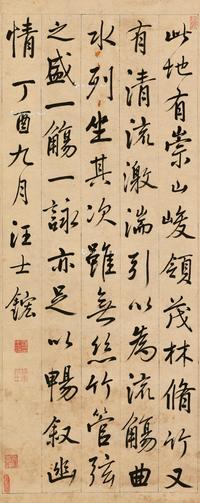 此地有崇山峻領茂林脩竹又
有清流激湍引以為流觴曲
水列坐其次雖無絲竹管弦
之盛一觴一詠亦足以暢叙幽
情 丁酉九月 汪士鋐